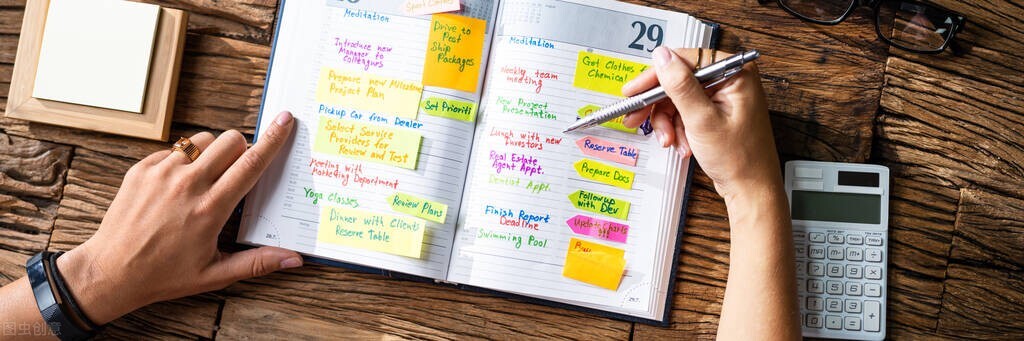 Meditation
Introduce new
Manager to
Collegues
Prepare new Milestone
Project Plan
Pickup Car from Dealer
Select Service
Providers for
Review and Test
Meeting with
Marketing Department
Yoga Classes
Dinner with Clients
Reserve Table
Drive to
Post
Ship
Packages
Set Prioriti
Review Plans
29
Meditation
Weekly team
meeting
New Project
Presentation
Lunch with new
Investors
Real Estate
Agent Appt.
Dentist Appt.
Finish Report
Deadline
Swimming Pool
Get Clothes
Chemical
Reserve Table
Prepare Docs
Followup
with Dev
Update
图虫创意